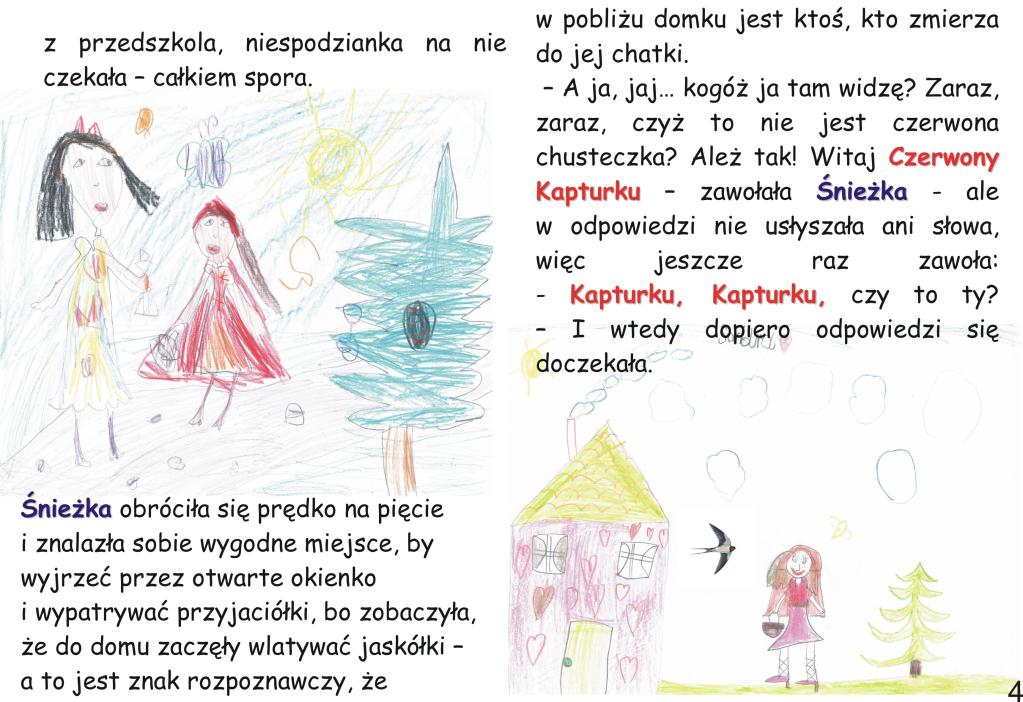 z przedszkola, niespodzianka na nie
czekała – całkiem spora.
Śnieżka obróciła się prędko na pięcie
i znalazła sobie wygodne miejsce, by
wyjrzeć przez otwarte okienko
i wypatrywać przyjaciółki, bo zobaczyła,
że do domu zaczęły wlatywać jaskółki –
a to jest znak rozpoznawczy, że
w pobliżu domku jest ktoś, kto zmierza
do jej chatki.
– A ja, jaj… kogóż ja tam widzę? Zaraz,
zaraz, czyż to nie jest czerwona
chusteczka? Ależ tak! Witaj Czerwony
Kapturku – zawołała Śnieżka - ale
w odpowiedzi nie usłyszała ani słowa,
więc jeszcze raz zawoła:
- Kapturku, Kapturku, czy to ty?
– I wtedy dopiero odpowiedzi się
doczekała.
4